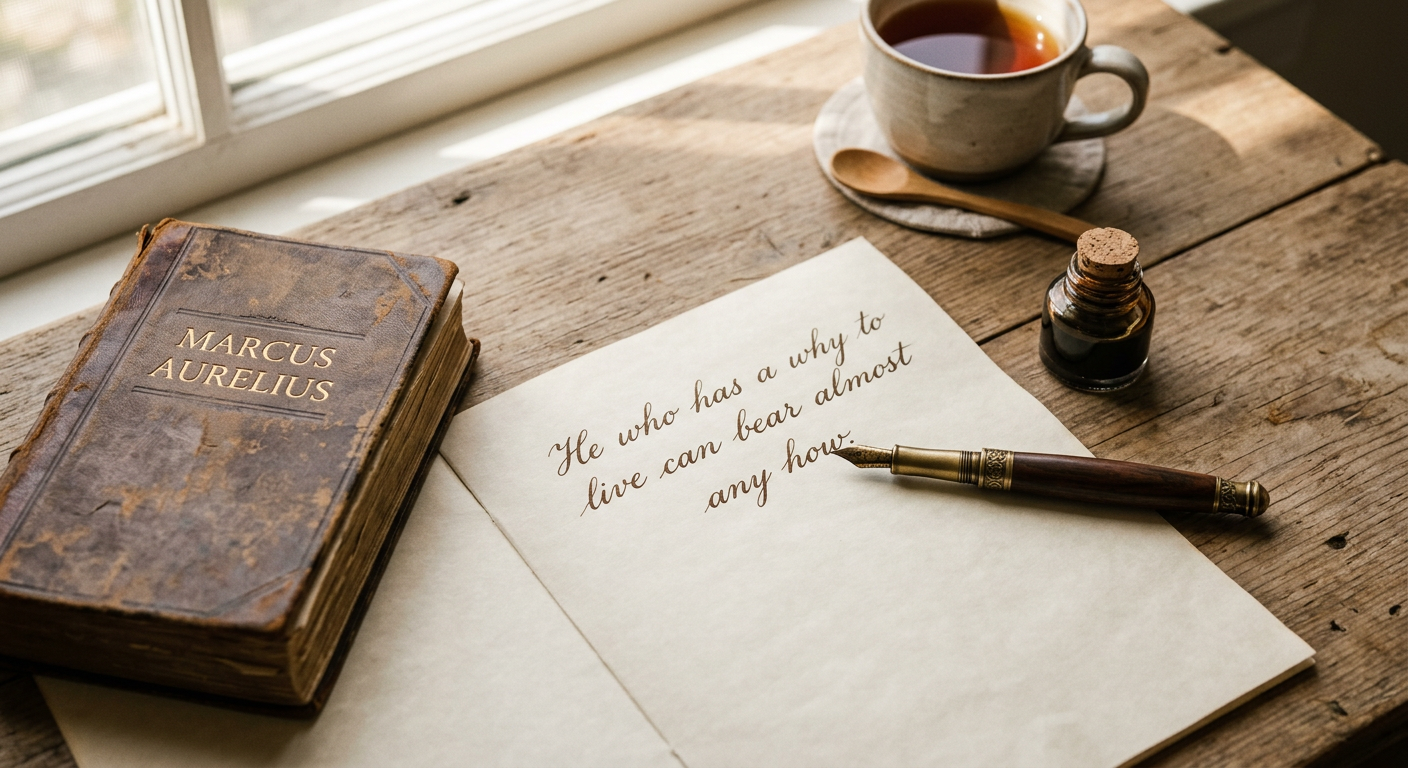 MARCUS
AURELIUS
He who has a why to
live can bear almost
any how.